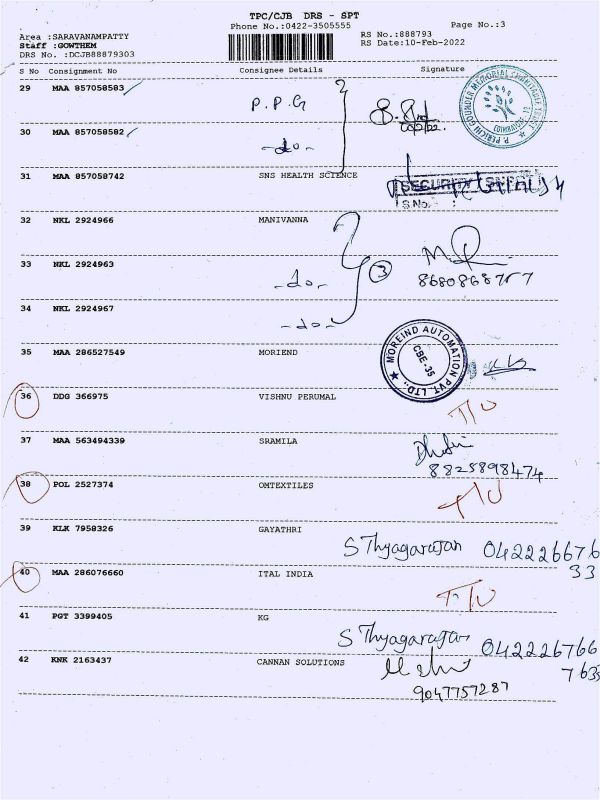 TPC/CJB DRS - SPT
Phone No.:0422-3505555
Page No.:3
Area :SARAVANAMPATTY
Staff :GOWTHEM
DRS No. :DCJB88879303
RS No.:888793
RS Date:10-Feb-2022
S No Consignment No Consignee Details Signature
29 MAA 857058583 P.P.G
P. PERICHI GOUNDER MEMORIAL CHARITABLE TRUST
COIMBATORE
30 MAA 857058582 -do-
31 MAA 857058742 SNS HEALTH SCIENCE
SECURITY
S.No. :
32 NKL 2924966 MANIVANNA
33 NKL 2924963 -do- 3
8680868757
34 NKL 2924967 -do-
35 MAA 286527549 MORIEND
MOREIND AUTOMATION PVT. LTD.,
CBE-35
36 DDG 366975 VISHNU PERUMAL T/U
37 MAA 563494339 SRAMILA
8825898474
38 POL 2527374 OMTEXTILES T/U
39 KLK 7958326 GAYATHRI S Thyagarajan 042226676
33
40 MAA 286076660 ITAL INDIA T/U
41 PGT 3399405 KG S Thyagarajan 042226766
42 KNK 2163437 CANNAN SOLUTIONS
9047757287